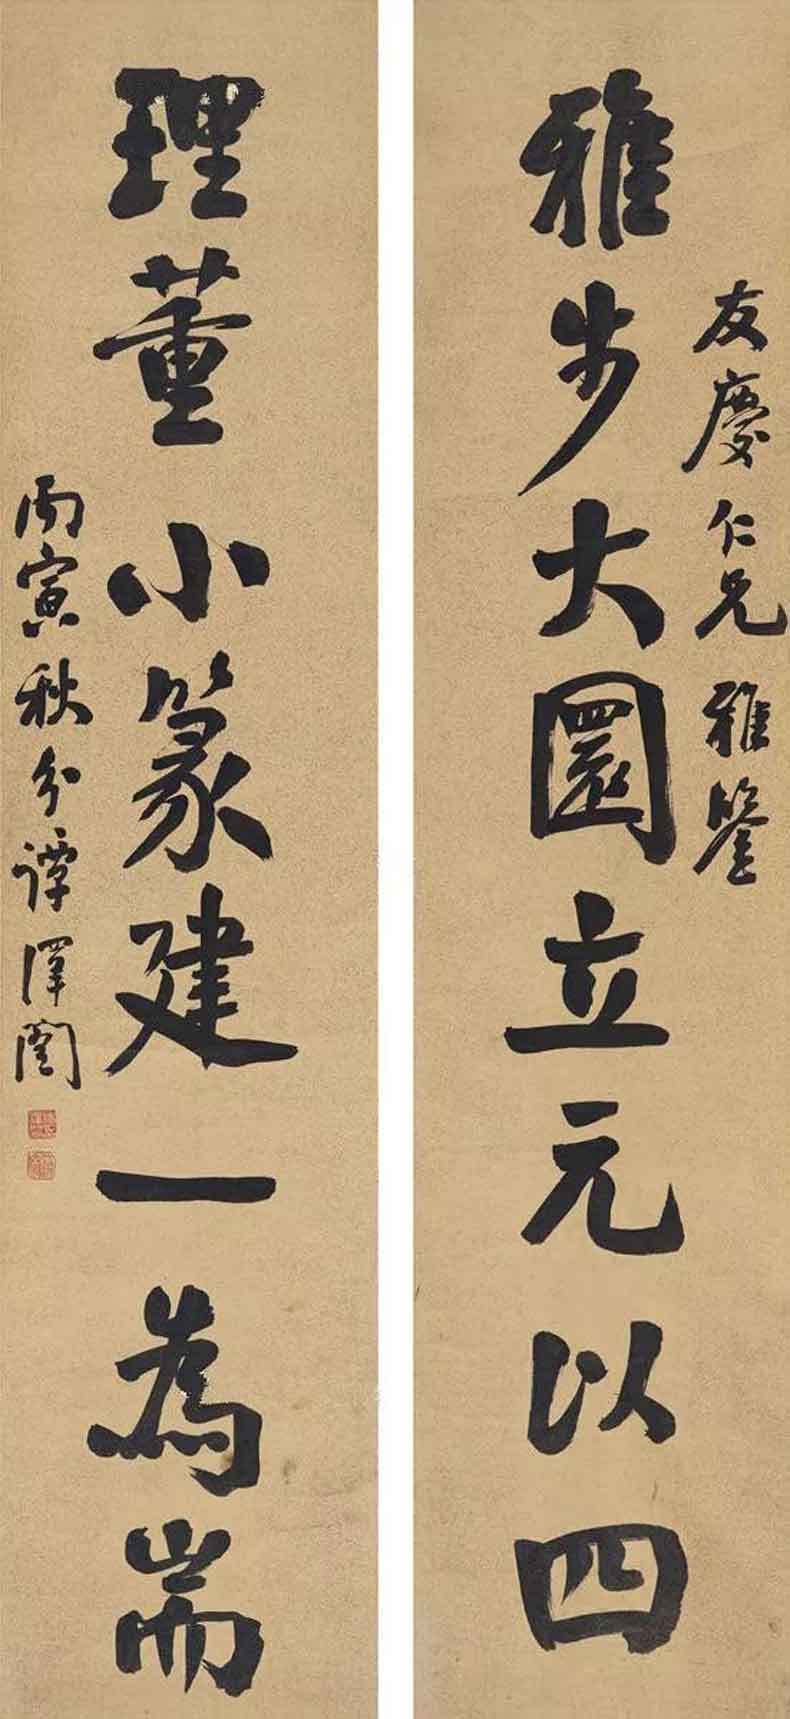 友慶仁兄雅鑒
雅步大圜立元以四
理董小篆建一為耑
丙寅秋分譚澤闓